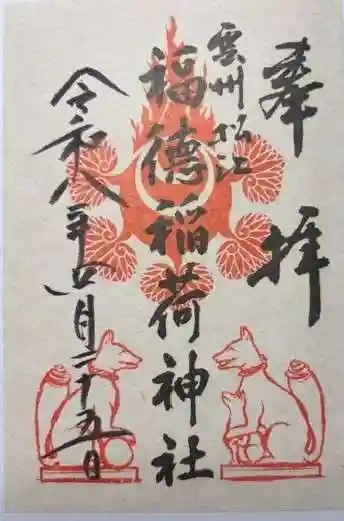 奉拝
雲州松江
福徳稲荷神社
令和八年四月二十五日